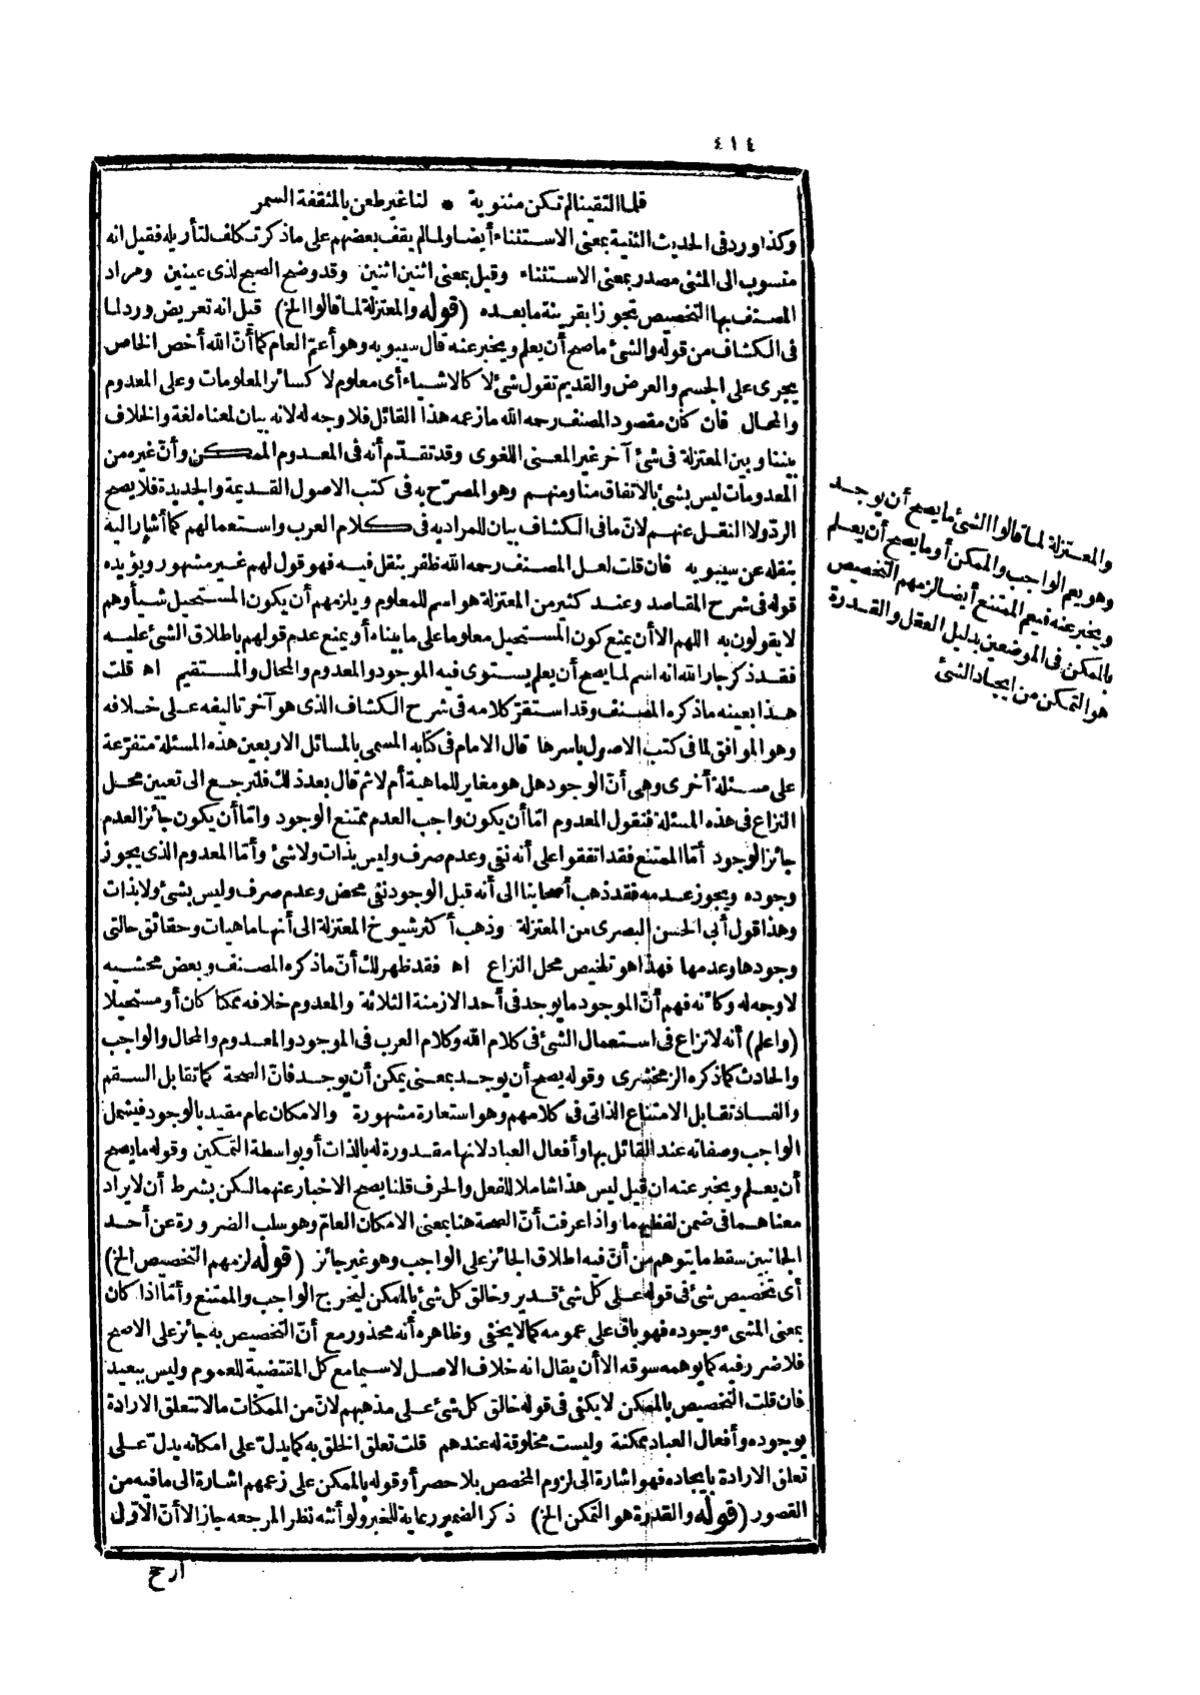 ٤١٤
فلما التقينا لم تكن مثنوية * لنا غير طعن بالمثقفة السمر
وكذا ورد فى الحديث الثنية بمعنى الاستثناء أيضا ولما لم يقف بعضهم على ما ذكر تكلف لتأويله فقيل انه
منسوب الى المثنى مصدر بمعنى الاستثناء وقيل بمعنى اثنين اثنين وقد وضح الصبح لذى عينين ومراد
المصنف بها التخصيص تجوزا بقرينة ما بعده (قوله والمعتزلة لما قالوا الخ) قيل انه تعريض ورد لما
فى الكشاف من قوله والشئ ما صح أن يعلم ويخبر عنه قال سيبويه وهو أعمّ العام كما أنّ الله أخص الخاص
يجرى على الجسم والعرض والقديم تقول شئ لا كالاشياء أى معلوم لا كسائر المعلومات وعلى المعدوم
والمحال فان كان مقصود المصنف رحمه الله ما زعمه هذا القائل فلا وجه له لانه بيان لمعناه لغة والخلاف
بيننا وبين المعتزلة فى شئ آخر غير المعنى اللغوى وقد تقدّم أنه فى المعدوم الممكن وأنّ غيره من
المعدومات ليس بشئ بالاتفاق منا ومنهم وهو المصرّح به فى كتب الاصول القديمة والجديدة فلا يصح
الردّ ولا النقل عنهم لانّ ما فى الكشاف بيان للمراد به فى كلام العرب واستعمالهم كما أشار اليه
بنقله عن سيبويه فان قلت لعل المصنف رحمه الله ظفر بنقل فيه فهو قول لهم غير مشهور ويؤيده
قوله فى شرح المقاصد وعند كثير من المعتزلة هو اسم للمعلوم ويلزمهم أن يكون المستحيل شيأ وهم
لا يقولون به اللهم الا أن يمنع كون المستحيل معلوما على ما بيناه أو يمنع عدم قولهم باطلاق الشئ عليه
فقد ذكر جار الله انه اسم لما يصح أن يعلم يستوى فيه الموجود والمعدوم والمحال والمستقيم اه قلت
هذا بعينه ما ذكره المصنف وقد استقرّ كلامه فى شرح الكشاف الذى هو آخر تاليفه على خلافه
وهو الموافق لما فى كتب الاصول باسرها قال الامام فى كتابه المسمى بالمسائل الاربعين هذه المسئلة متفرّعة
على مسئلة أخرى وهى أنّ الوجود هل هو مغاير للماهية أم لا ثم قال بعد ذلك فلترجع الى تعيين محل
النزاع فى هذه المسئلة فنقول المعدوم امّا أن يكون واجب العدم ممتنع الوجود وامّا أن يكون جائز العدم
جائز الوجود أمّا الممتنع فقد اتفقوا على أنه نفى وعدم صرف وليس بذات ولا شئ وأمّا المعدوم الذى يجوز
وجوده ويجوز عدمه فقد ذهب أصحابنا الى أنه قبل الوجود نفى محض وعدم صرف وليس بشئ ولا بذات
وهذا قول أبى الحسن البصرى من المعتزلة وذهب أكثر شيوخ المعتزلة الى أنها ماهيات وحقائق حالتى
وجودها وعدمها فهذا هو تلخيص محل النزاع اه فقد ظهر لك أنّ ما ذكره المصنف وبعض محشيه
لا وجه له وكأنه فهم أنّ الموجود ما يوجد فى أحد الازمنة الثلاثة والمعدوم خلافه ممكنا كان أو مستحيلا
(واعلم) أنه لا نزاع فى استعمال الشئ فى كلام الله وكلام العرب فى الموجود والمعدوم والمحال والواجب
والحادث كما ذكره الزمخشرى وقوله يصح أن يوجد بمعنى يمكن أن يوجد فانّ الصحة كما تقابل السقم
والفساد تقابل الامتناع الذاتى فى كلامهم وهو استعارة مشهورة والامكان عام مقيد بالوجود فيشمل
الواجب وصفاته عند القائل بها وأفعال العباد لانها مقدورة له بالذات أو بواسطة التمكين وقوله ما يصح
أن يعلم ويخبر عنه ان قيل ليس هذا شاملا للفعل والحرف قلنا يصح الاخبار عنهما لكن بشرط أن لا يراد
معناهما فى ضمن لفظيهما واذا عرفت أنّ الصحة هنا بمعنى الامكان العامّ وهو سلب الضرورة عن أحد
الجانبين سقط ما يتوهم من أنّ فيه اطلاق الجائز على الواجب وهو غير جائز (قوله لزمهم التخصيص الخ)
أى تخصيص شئ فى قوله على كلّ شئ قدير وخالق كل شئ بالممكن ليخرج الواجب والممتنع وأمّا اذا كان
بمعنى المشىء وجوده فهو باق على عمومه كما لا يخفى وظاهره أنه محذور مع أنّ التخصيص به جائز على الاصح
فلا ضرر فيه كما يوهمه سوقه الا أن يقال انه خلاف الاصل لا سيما مع كل المقتضية للعموم وليس ببعيد
فان قلت التخصيص بالممكن لا يكفى فى قوله خالق كل شئ على مذهبهم لانّ من الممكنات ما لا تتعلق الارادة
بوجوده وأفعال العباد ممكنة وليست مخلوقة له عندهم قلت تعلق الخلق به كما يدلّ على امكانه يدلّ على
تعلق الارادة بايجاده فهو اشارة الى لزوم المخصص بلا حصر أو قوله بالممكن على زعمهم اشارة الى ما فيه من
القصور (قوله والقدرة هو التمكن الخ) ذكر الضمير رعاية للخبر ولو أنثه نظر المرجعه جاز الا أنّ الاوّل
ارح
والمعتزلة لما قالوا الشئ ما يصح أن يوجد
وهو يعم الواجب والممكن أو ما يصح أن يعلم
ويخبر عنه فيعم الممتنع أيضا لزمهم التخصيص
بالممكن فى الموضعين بدليل العقل والقدرة
هو التمكن من ايجاد الشئ